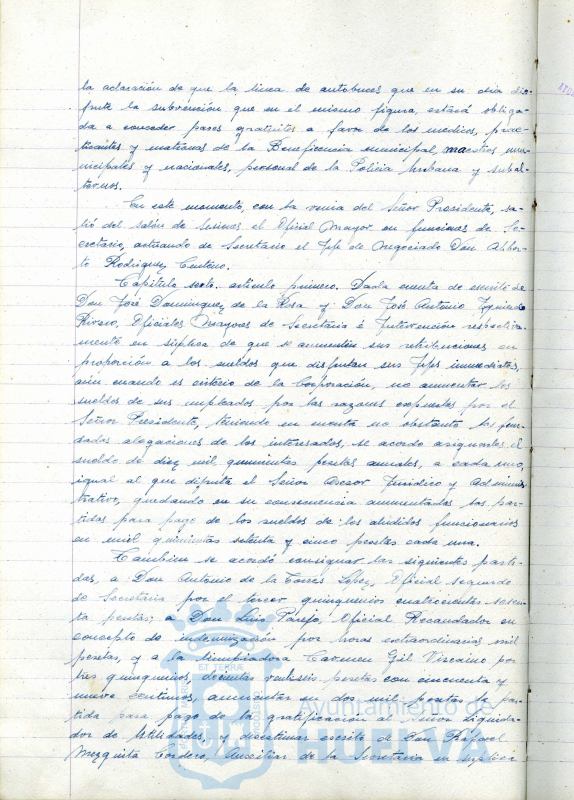 la aclaración de que la linea de autobuses que en su dia dis-
frute la subvención que en el mismo figura, estará obliga-
da a conceder pases gratuitos a favor de los medicos, prac-
ticantes y matronas de la Beneficencia municipal, maestros mu-
nicipales y nacionales, personal de la Policia Urbana y subal-
ternos.
En este momento, con la venia del Señor Presidente, sa-
lió del salón de sesiones el Oficial Mayor en funciones de Se-
cretario, actuando de Secretario el Jefe de Negociado Don Alber-
to Rodriguez Centeno.
Capitulo sexto. articulo primero. Dada cuenta de escrito de
Don José Dominguez de la Rosa y Don José Antonio
Rivero, Oficiales Mayores de Secretaria é Intervención respectiva-
mente en súplica de que se aumenten sus retribuciones en
proporción a los sueldos que disfrutan sus Jefes inmediatos,
aun cuando es criterio de la Corporación, no aumentar los
sueldos de sus empleados por las razones expuestas por el
Señor Presidente, teniendo en cuenta no obstante las fun-
dadas alegaciones de los interesados, se acordo asignarles el
sueldo de diez mil quinientas pesetas anuales, a cada uno,
igual al que disfruta el Señor Asesor Juridico y Adminis-
trativo, quedando en su consecuencia aumentadas las par-
tidas para pago de los sueldos de los aludidos funcionarios
en mil quinientas setenta y cinco pesetas cada una.
Tambien se acordó consignar las siguientes parti-
das, a Don Antonio de la Torres Lopez, Oficial segundo
de Secretaria por el tercer quinquenio cuatrocientas sesen-
ta pesetas; a Don Luis Parejo, Oficial Recaudador en
concepto de indemnización por horas extraordinarias mil
pesetas, y a la limpiadora Carmen Gil Viscaino por
tres quinquenios, doscientas veintiseis pesetas con cincuenta y
nueve centimos, aumentar en dos mil pesetas la par-
tida para pago de la gratificación al Señor Liquida-
dor de Utilidades, y desestimar escrito de Don Rafael
Mezquita Cordero, Auxiliar de la Secretaria en suplica
Ayuntamiento de
HUELVA